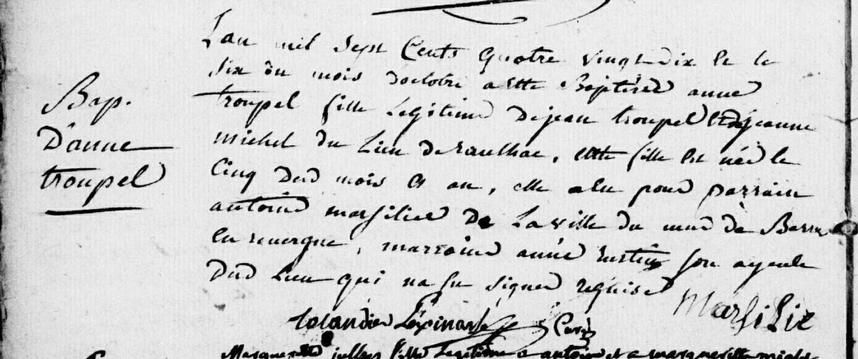 Bap.
D'anne
troupel
L'an mil sept Cents quatre vingt dix et le
six du mois doctobre a ette Baptisée anne
troupel fille Legitime de jean troupel et de jeanne
michel du Lieu de raulhac, cette fille est née le
Cinq dud mois et an, elle a eu pour parrain
antoine marsilie de La ville du mur de Barres
En rouergue, marraine anne son ayeule
dud Lieu qui na su signer requise
Marsilie
Lolandier Lespinasse Curé
fille Legitime a antoine et a marguerite